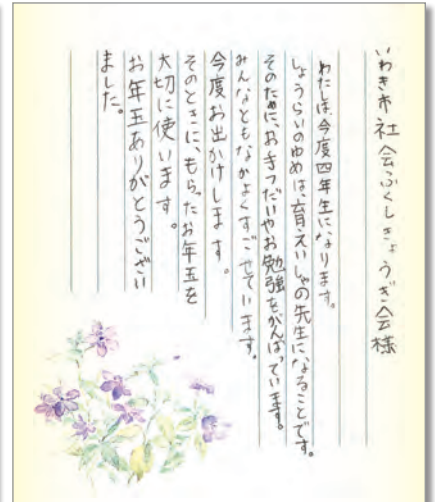 いわき市社会ふくしきょうぎ会様
わたしは、今度四年生になります。
しょうらいのゆめは、育えいしゃの先生になることです。
そのために、お手つだいやお勉強をがんばっています。
みんなともなかよくすごせています。
今度お出かけします。
そのときに、もらったお年玉を
大切に使います。
お年玉ありがとうござい
ました。